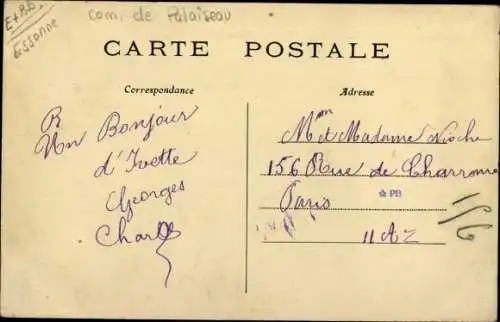 E+RB
Essonne
com. de Palaiseau
CARTE POSTALE
Correspondance
Adresse
R
Un Bonjour
d'Ivette
Georges
Charles
Mr et Madame Nioche
156 Rue de Charonne
PB
Paris
11 Az